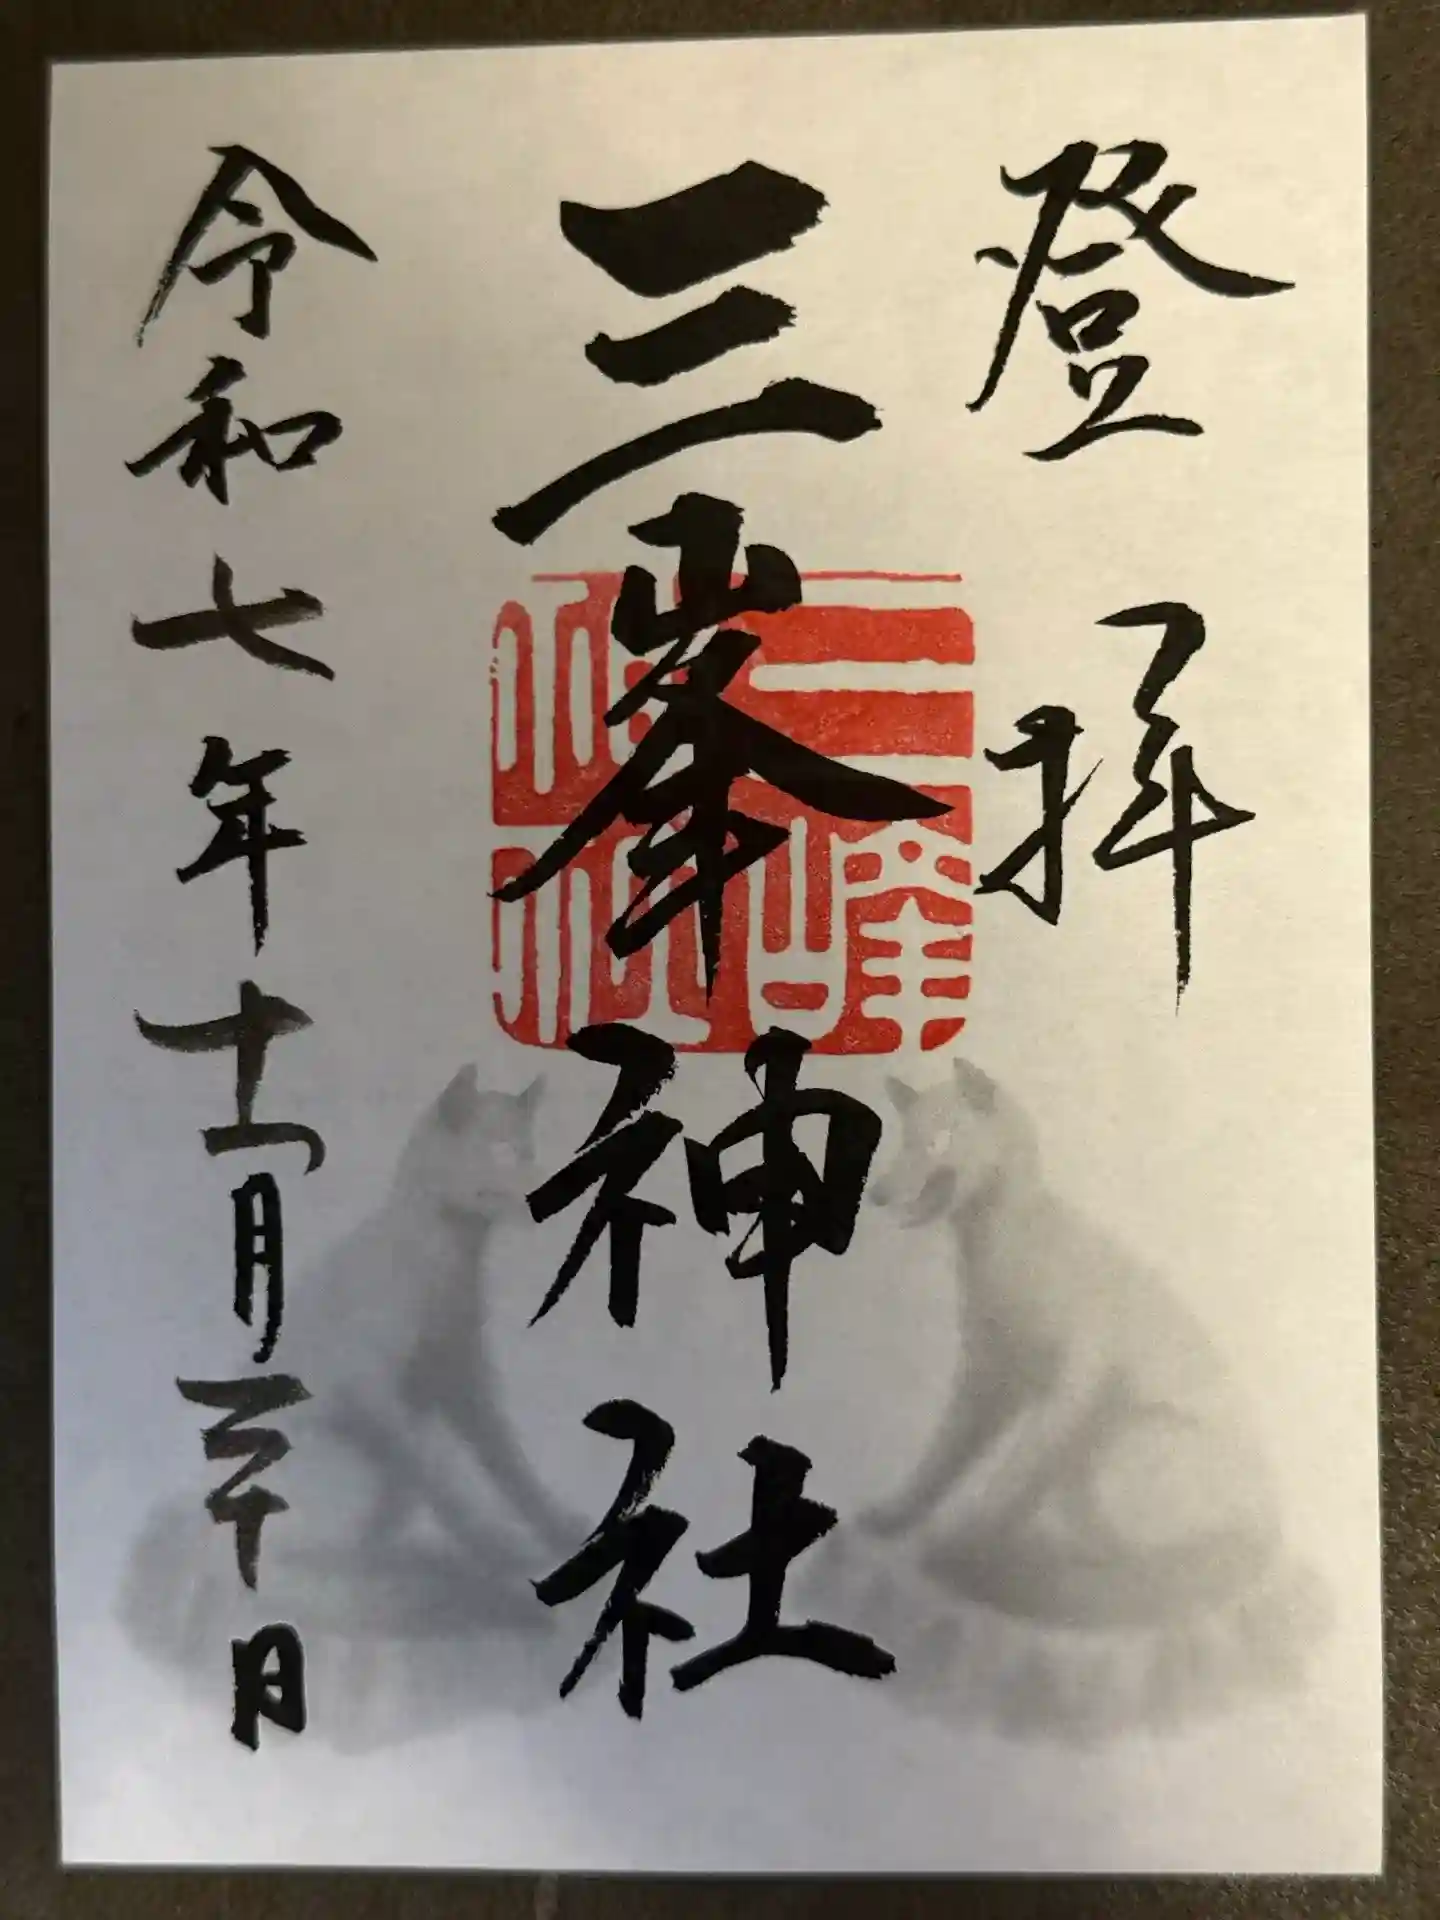 登拝
三峯神社
三峰神社
令和七年十一月三十日